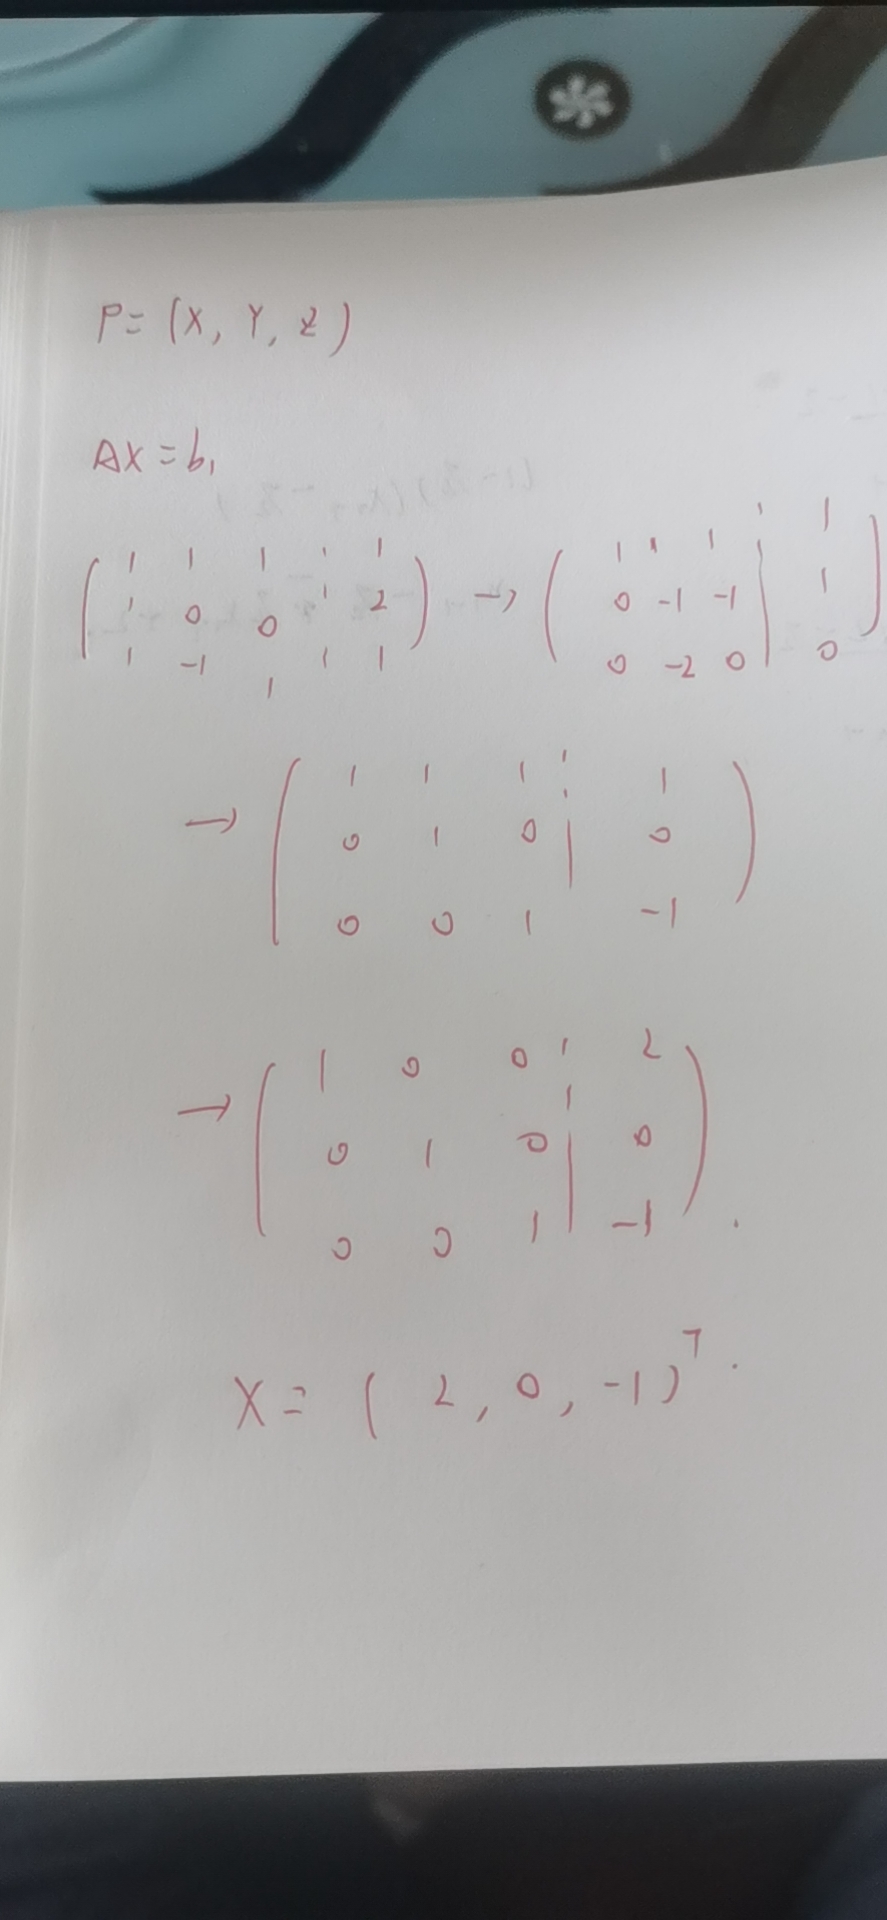 P = (X, Y, Z)
AX = b₁
( 1 1 1 ¦ 1 ) → ( 1 1 1 ¦ 1 )
( 1 0 0 ¦ 2 ) ( 0 -1 -1 | 1 )
( 1 -1 1 ¦ 1 ) ( 0 -2 0 | 0 )
→ ( 1 1 1 ¦ 1 )
( 0 1 0 | 0 )
( 0 0 1 -1 )
→ ( 1 0 0 ¦ 2 )
( 0 1 0 | 0 )
( 0 0 1 | -1 ) .
X = ( 2, 0, -1)ᵀ .